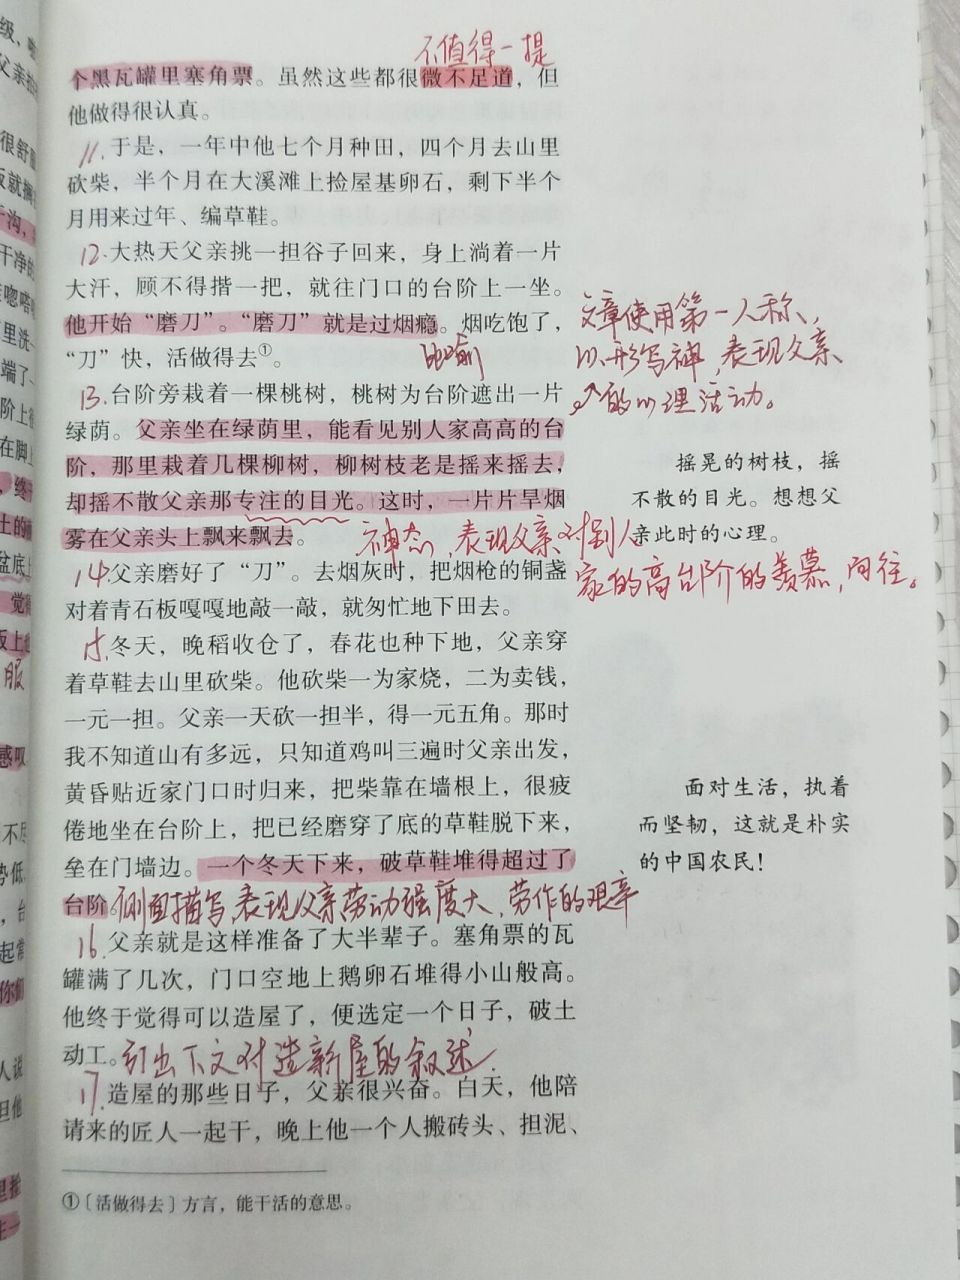 不值得一提
个黑瓦罐里塞角票。虽然这些都很微不足道，但
他做得很认真。
11.于是，一年中他七个月种田，四个月去山里
砍柴，半个月在大溪滩上捡屋基卵石，剩下半个
月用来过年、编草鞋。
12.大热天父亲挑一担谷子回来，身上淌着一片
大汗，顾不得揩一把，就往门口的台阶上一坐。
他开始“磨刀”。“磨刀”就是过烟瘾。烟吃饱了，
“刀”快，活做得去①。
比喻
13.台阶旁栽着一棵桃树，桃树为台阶遮出一片
绿荫。父亲坐在绿荫里，能看见别人家高高的台
阶，那里栽着几棵柳树，柳树枝老是摇来摇去，
却摇不散父亲那专注的目光。这时，一片片旱烟
雾在父亲头上飘来飘去。
文章使用第一人称，
以形写神，表现父亲
的心理活动。
摇晃的树枝，摇
不散的目光。想想父
亲此时的心理。
神态，表现父亲对别人
家的高台阶的羡慕，向往。
14.父亲磨好了“刀”。去烟灰时，把烟枪的铜盏
对着青石板嘎嘎地敲一敲，就匆忙地下田去。
15.冬天，晚稻收仓了，春花也种下地，父亲穿
着草鞋去山里砍柴。他砍柴一为家烧，二为卖钱，
一元一担。父亲一天砍一担半，得一元五角。那时
我不知道山有多远，只知道鸡叫三遍时父亲出发，
黄昏贴近家门口时归来，把柴靠在墙根上，很疲
倦地坐在台阶上，把已经磨穿了底的草鞋脱下来，
垒在门墙边。一个冬天下来，破草鞋堆得超过了
台阶。侧面描写，表现父亲劳动强度大，劳作的艰辛
面对生活，执着
而坚韧，这就是朴实
的中国农民！
16.父亲就是这样准备了大半辈子。塞角票的瓦
罐满了几次，门口空地上鹅卵石堆得小山般高。
他终于觉得可以造屋了，便选定一个日子，破土
动工。引出下文对造新屋的叙述.
17.造屋的那些日子，父亲很兴奋。白天，他陪
请来的匠人一起干，晚上他一个人搬砖头、担泥、
①〔活做得去〕方言，能干活的意思。